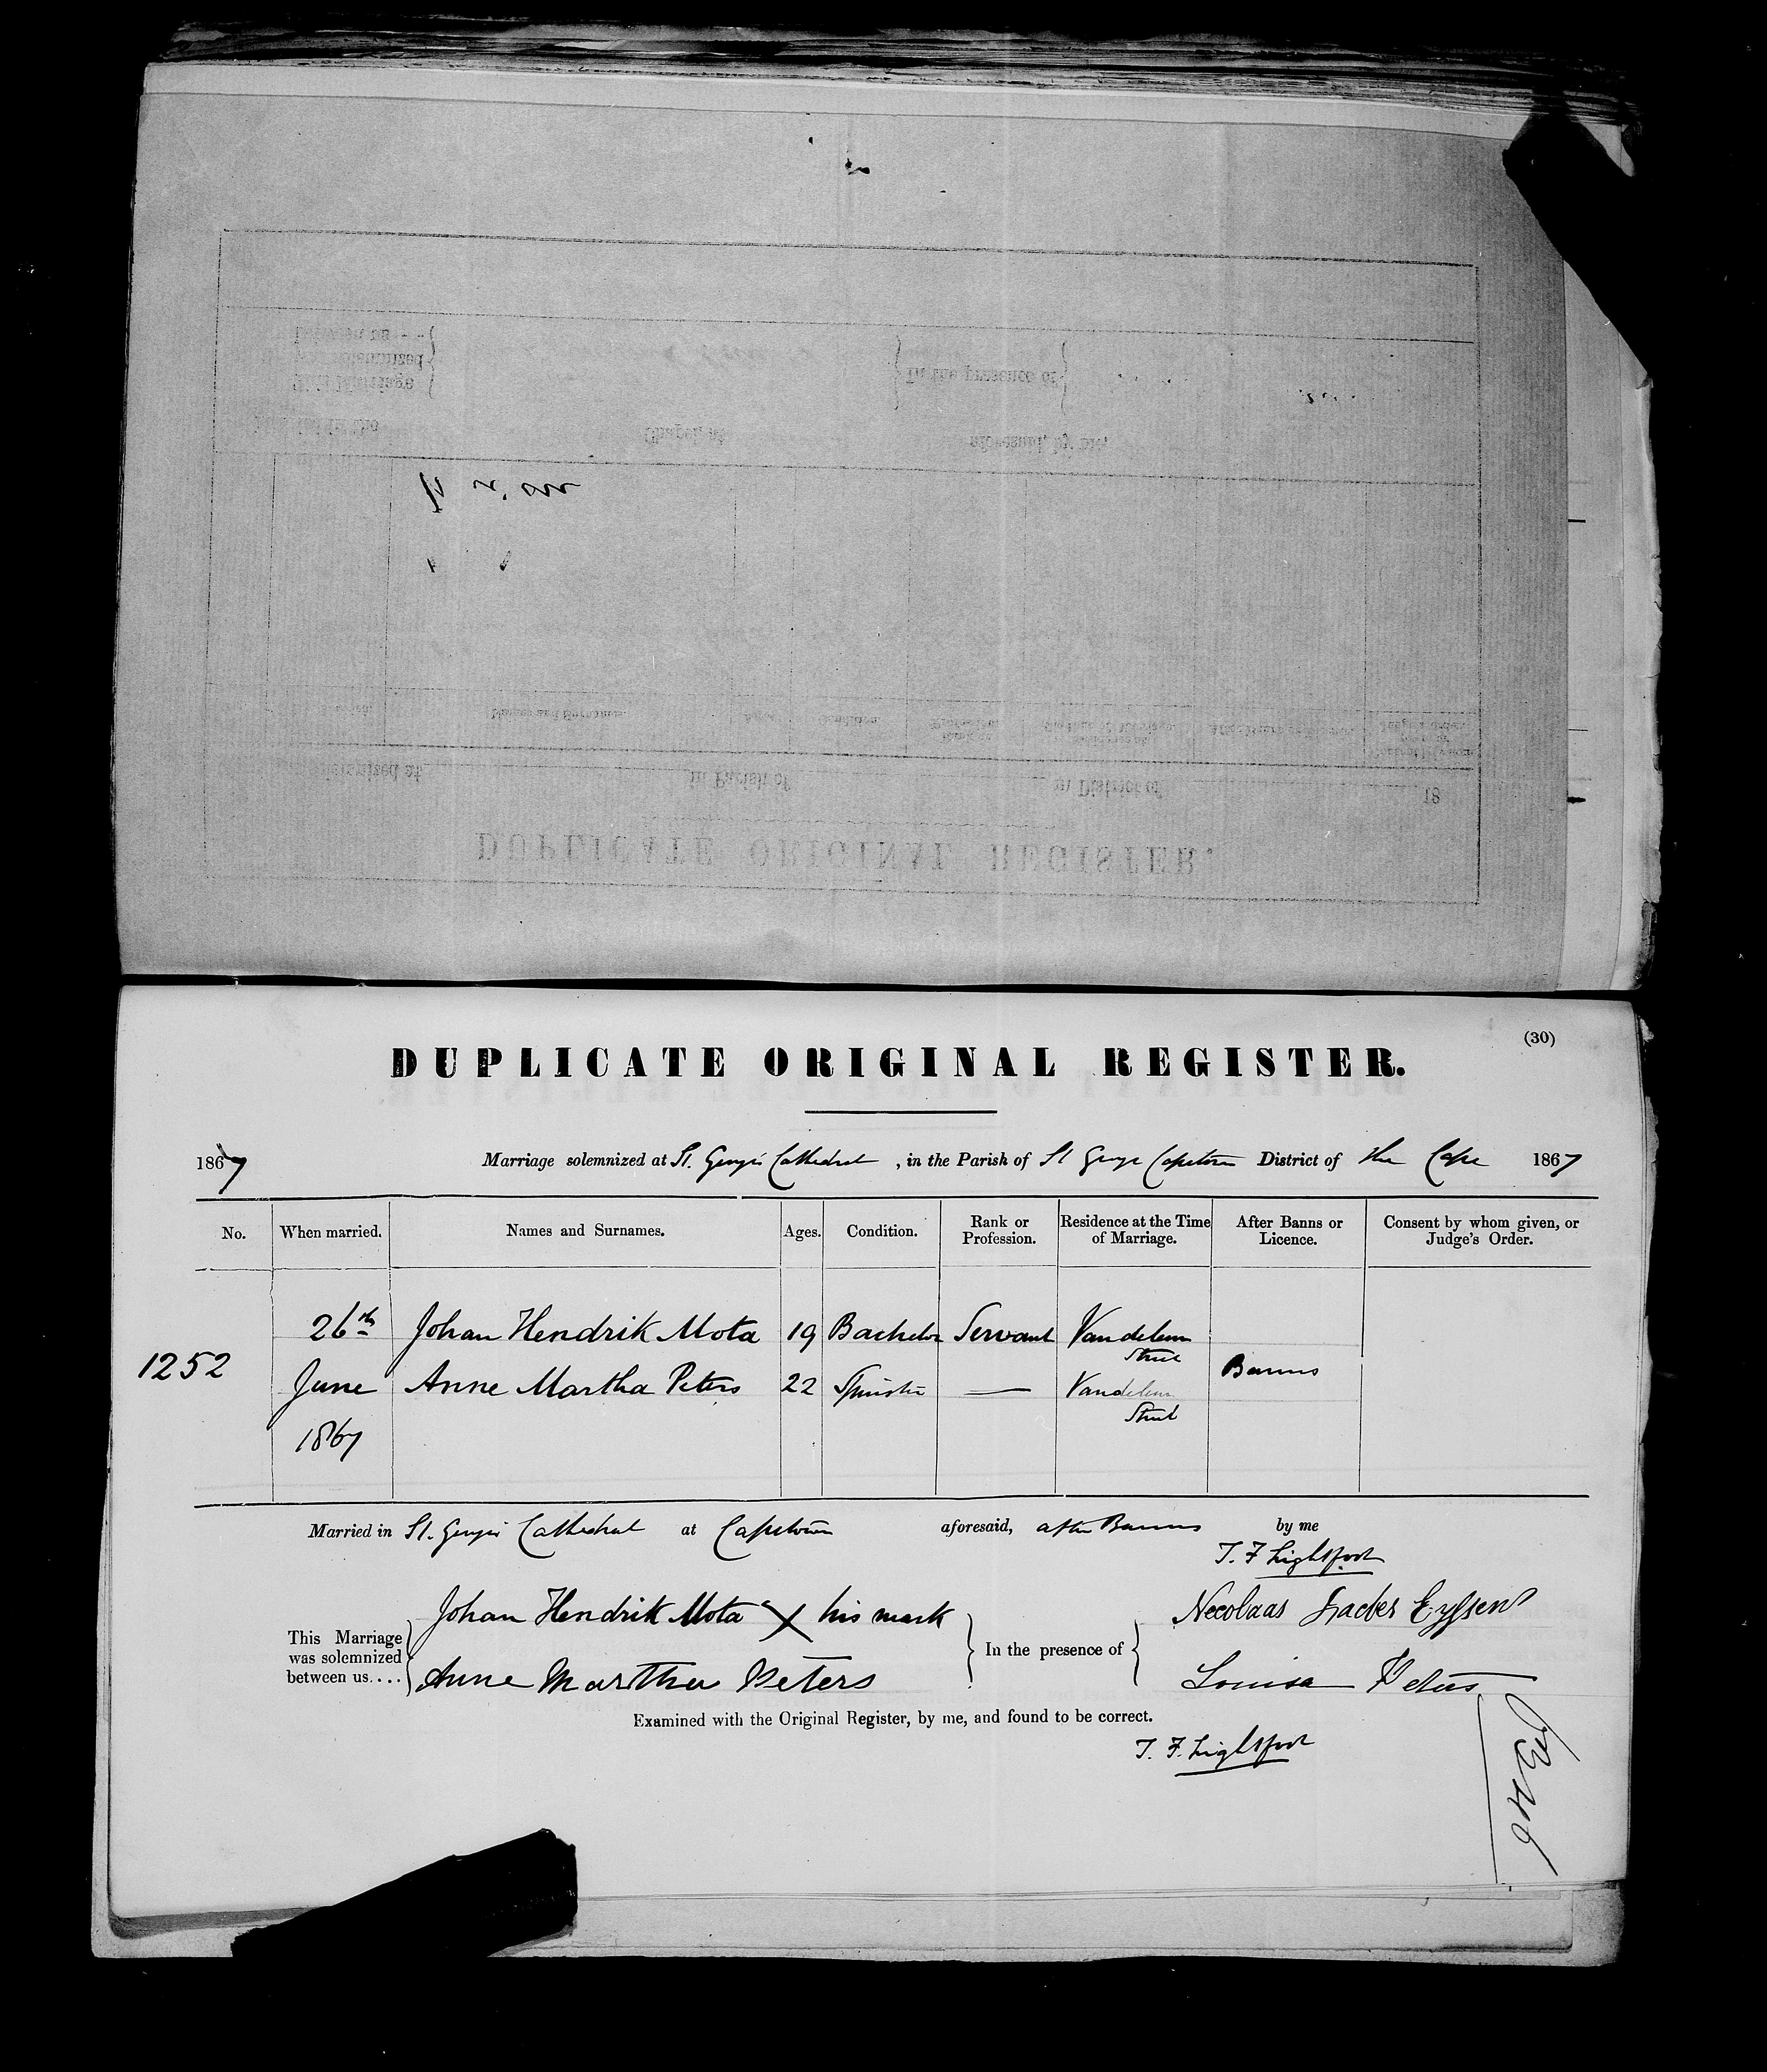 (30)
DUPLICATE ORIGINAL REGISTER.
1867 Marriage solemnized at St. George's Cathedral, in the Parish of St George Capetown District of the Cape 1867
No. When married. Names and Surnames. Ages. Condition. Rank or Profession. Residence at the Time of Marriage. After Banns or Licence. Consent by whom given, or Judge's Order.
1252 26th June 1867
Johan Hendrik Mota 19 Bachelor Servant Vandeleur Street
Anne Martha Peters 22 Spinster — Vandeleur Street
Banns
Married in St. George's Cathedral at Capetown aforesaid, after Banns by me
T. F. Lightfoot
This Marriage was solemnized between us....
Johan Hendrik Mota X his mark
Anne Martha Peters
In the presence of
Necolaas Eyssen
Louisa Peters
Examined with the Original Register, by me, and found to be correct.
T. F. Lightfoot